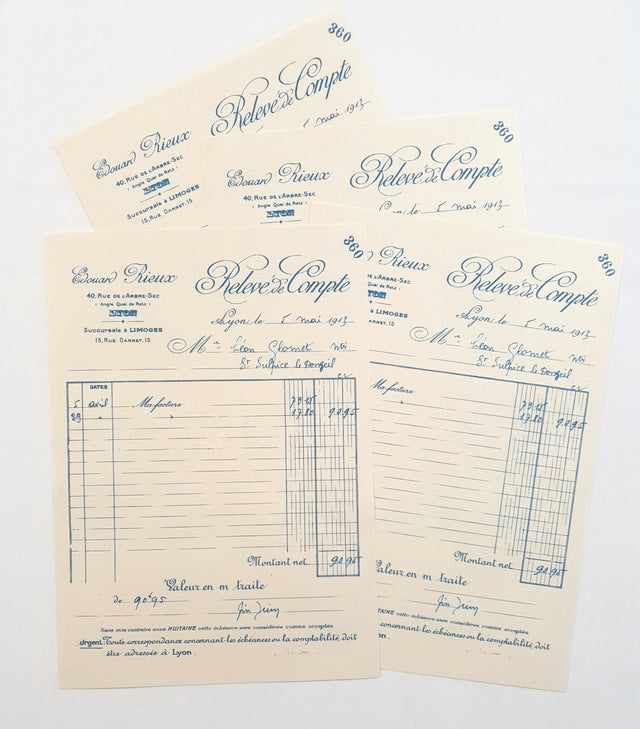 360
Relevé de Compte
Edouard Rieux
mai 1913
40, RUE DE L'ARBRE-SEC
(Angle Quai de Retz)
LYON
Succursale à LIMOGES
15, RUE DARNET, 15
360
Relevé de Compte
Edouard Rieux
40, RUE DE L'ARBRE-SEC
(Angle Quai de Retz)
LYON
5 mai 1913
360
Edouard Rieux
Relevé de Compte
40, RUE DE L'ARBRE-SEC
(Angle Quai de Retz)
LYON
Lyon, le 5 mai 1913
Succursale à LIMOGES
15, RUE DARNET, 15
M Léon
St Sulpice le
DATES
5 avril Ma facture 73 15
29 " " 17 80 90 95
Montant net 90 95
Valeur en m traite
de 90f95 fin Juin
Sans avis contraire sous HUITAINE cette échéance sera considérée comme acceptée.
Urgent. Toute correspondance concernant les échéances ou la comptabilité doit
être adressée à Lyon.
360
Rieux
Relevé de Compte
L'ARBRE-SEC
Quai de Retz)
LYON
Lyon, le 5 mai 1913
à LIMOGES
DARNET, 15
M Léon
St Sulpice le
Ma facture 73 15
" 17 80 90 95
Montant net 90 95
Valeur en m traite
fin Juin
HUITAINE cette échéance sera considérée comme acceptée.
concernant les échéances ou la comptabilité doit
Lyon.